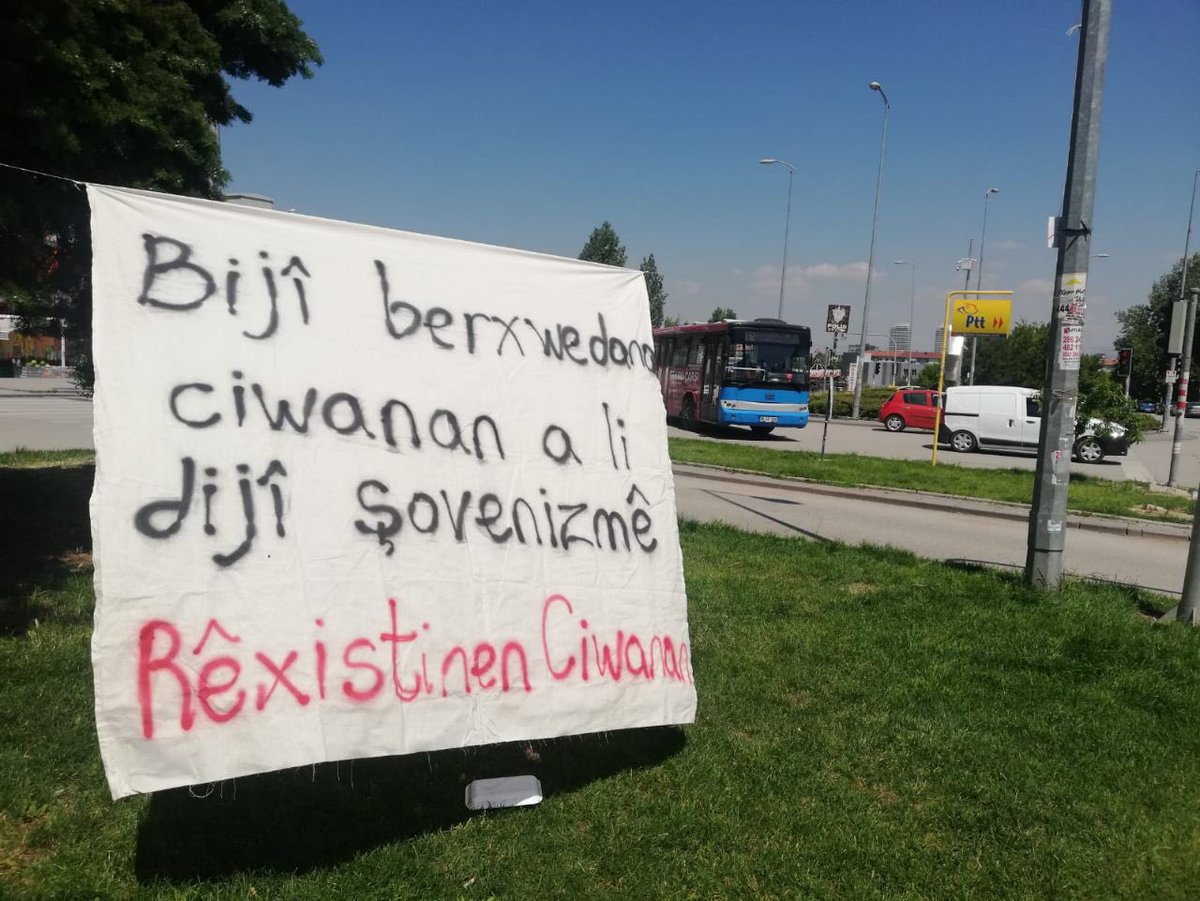 Bijî berxwedana
ciwanan a li
dijî şovenizmê
Rêxistinen Ciwanan
Ptt